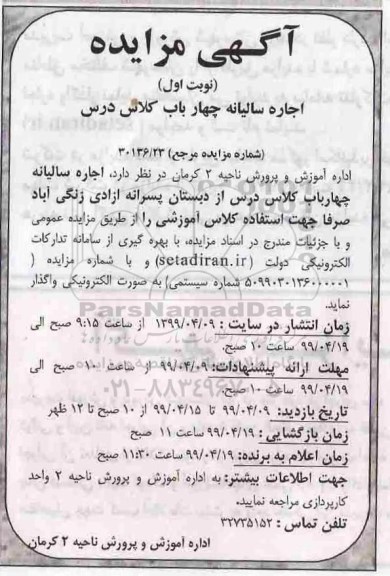 آگهی مزایده
(نوبت اول)
اجاره سالیانه چهار باب کلاس درس
(شماره مزایده مرجع) ۳۰۱۳۶/۲۳
اداره آموزش و پرورش ناحیه ۲ کرمان در نظر دارد، اجاره سالیانه
چهارباب کلاس درس از دبستان پسرانه ازادی زنگی آباد
صرفا جهت استفاده کلاس آموزشی را از طریق مزایده عمومی
و با جزئیات مندرج در اسناد مزایده، با بهره گیری از سامانه تدارکات
الکترونیکی دولت (setadiran.ir) و با شماره مزایده (
۵۰۹۹۰۳۰۱۳۶۰۰۰۰۰۱ شماره سیستمی) به صورت الکترونیکی واگذار
نماید.
زمان انتشار در سایت : ۱۳۹۹/۰۴/۰۹ از ساعت ۹:۱۵ صبح الی
۹۹/۰۴/۱۹ ساعت ۱۰ صبح.
مهلت ارائه پیشنهادات: ۹۹/۰۴/۰۹ از ساعت ۱۰ صبح الی
۹۹/۰۴/۱۹ ساعت ۱۰ صبح.
تاریخ بازدید: ۹۹/۰۴/۰۹ تا ۹۹/۰۴/۱۵ از ۱۰ صبح تا ۱۲ ظهر
زمان بازگشایی : ۹۹/۰۴/۱۹ ساعت ۱۱ صبح
زمان اعلام به برنده: ۹۹/۰۴/۱۹ ساعت ۱۱:۳۰ صبح
جهت اطلاعات بیشتر: به اداره آموزش و پرورش ناحیه ۲ واحد
کارپردازی مراجعه نمایید.
تلفن تماس : ۳۲۷۳۵۱۵۲
اداره آموزش و پرورش ناحیه ۲ کرمان
ParsNamadData